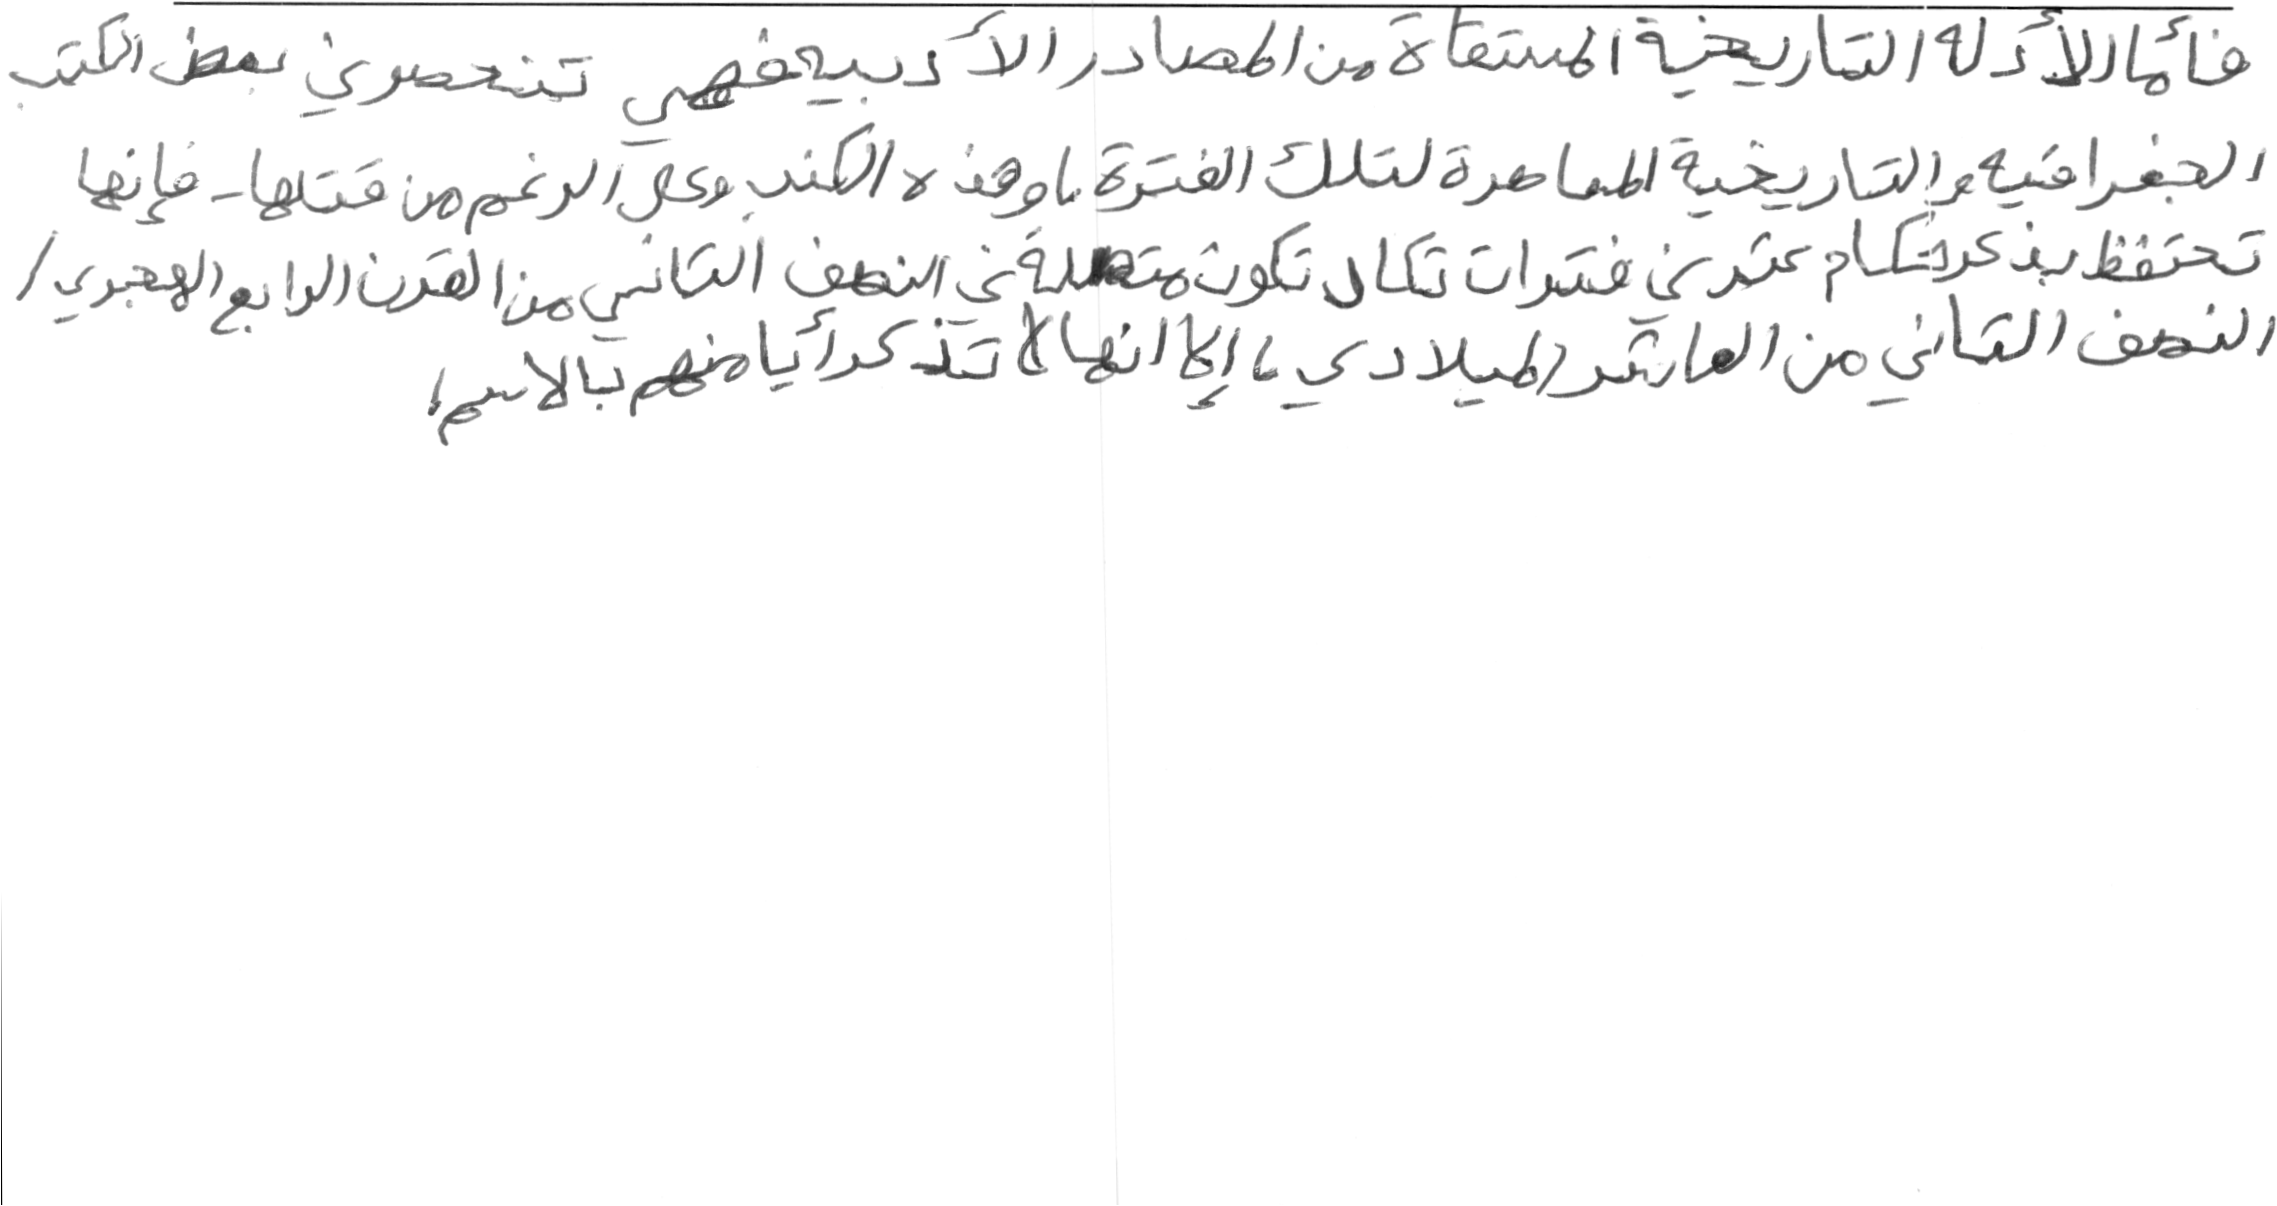 فأما الأدله التاريخية المستقاة من المصادر الأدبية فهي تنحصر في بعض الكتب
الجغرافيه والتاريخية المعاصرة لتلك الفترة، وهذه الكتب وعلى الرغم من قتلها - فإنها
تحتفظ بذكر حكام عثر في فترات تكاد تكون متصلة في النصف الثاني من القرن الرابع الهجري /
النصف الثاني من العاشر الميلادي، إلا انها لا تذكر أيا منهم بالاسم،